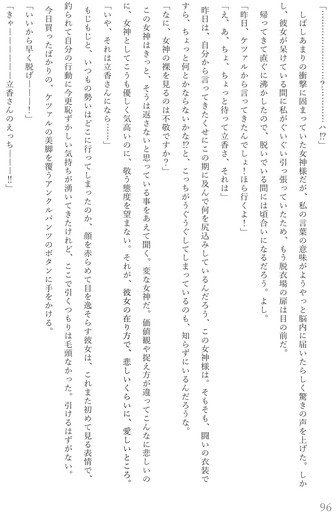 「…………………？…………………ハ!?」
　しばしあまりの衝撃に固まっていた女神様だが、私の言葉の意味がようやっと脳内に届いたらしく驚きの声を上げた。しか
し、彼女が呆けている間に私がぐいぐい引っ張っていたため、もう脱衣場の扉は目の前だ。
　帰ってきて直ぐに沸かしたので、脱いでいる間には頃合いになるだろう。よし。
「昨日、ケツァルから言ってきたんでしょ！ほら行くよ！」
「え、あ、ちょ、ちょっと待って立香さ、それは」
　昨日は、自分から言ってきたくせにこの期に及んで何を尻込みしているんだろう、この女神様は。そもそも、闘いの衣装で
すら、ちょっと何とかならないかな!?と、こっちがうぐうぐしてしまっているのも、知らずにいるんだろうな。
「なに、女神の裸を見るのは不敬ですか？」
「いや、それは立香さんになら……」
　この女神様はきっと、そうは返さないと思っている事をあえて聞く。変な女神だ。価値観や捉え方が違ってこんなに悲しいの
に、女神としてこうも優しく気高いのに、敬う態度を望まない。それが、彼女の在り方で、悲しいくらいに、愛しいところ。
　もじもじと、いつもの勢いはどこに行ってしまったのか、顔を赤らめて目を逸らす彼女は、これまた初めて見る表情で、
釣られて自分の行動に今更恥ずかしい気持ちが湧いてきたけれど、ここで引くつもりは毛頭なかった。引けるはずがない。
　今日買ったばかりの、ケツァルの美脚を覆うアンクルパンツのボタンに手をかける。
「いいから早く脱げーーー！！」
「きゃーーーーーー立香さんのえっちーーー！！」
96